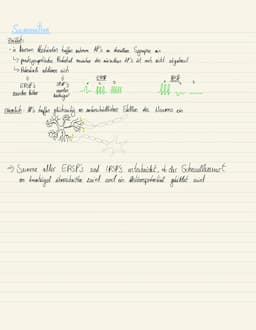 Summation
Zeitlich:
- in kurzen Abständen treffen mehrere AP's an derselben Synapse ein
↳ postsynaptisches Potential zwischen den einzelnen AP's ist noch nicht abgebaut
↳ Potentiale addieren sich
EPSP's
werden höher
IPSP's
werden
niedriger
EPSP
IPSP
Räumlich: AP's treffen gleichzeitig an unterschiedlichen Stellen des Neurons ein
→ Summe aller EPSP's und IPSP's entscheidet, ob der Schwellenwert
am Axonhügel überschritten wird und ein Aktionspotential gebildet wird